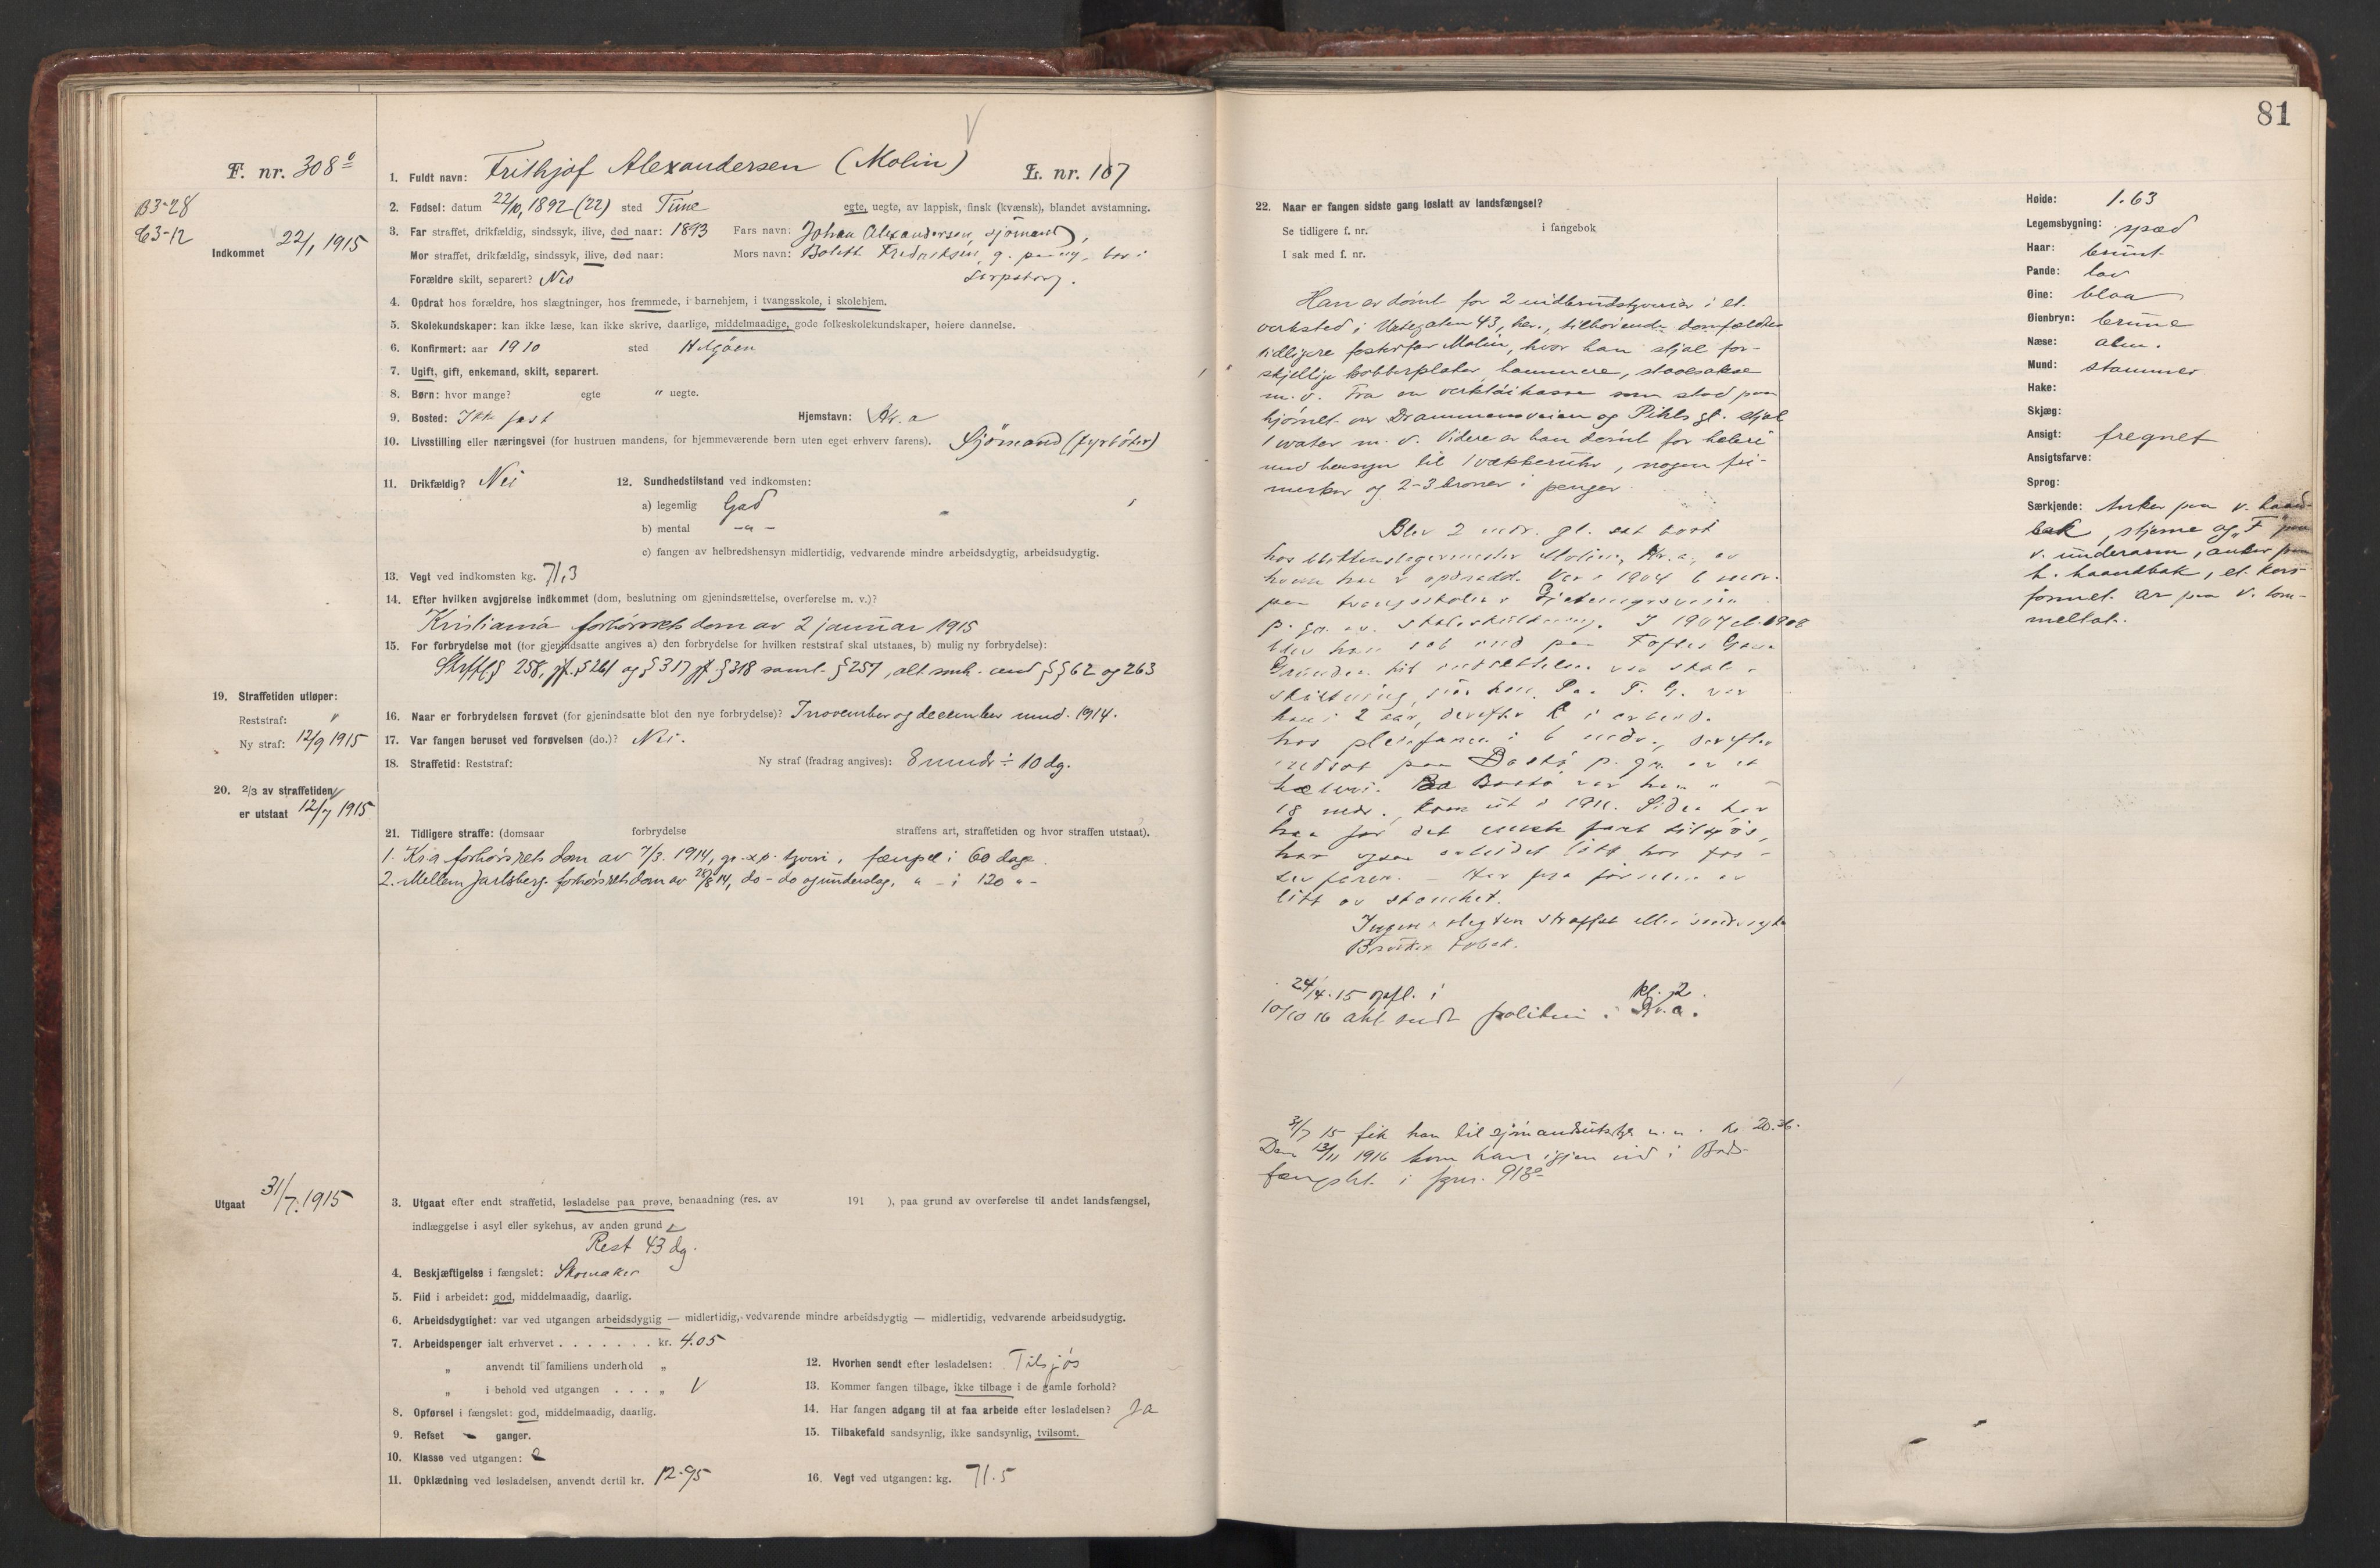 81
F. nr. 308
B3-28
C3-12
Indkommet 22/1 1915
1. Fuldt navn: Frithjof Alexandersen (Molin) L. nr. 107
2. Fødsel: datum 22/10, 1892 (22) sted Tune egte, uegte, av lappisk, finsk (kvænsk), blandet avstamning.
3. Far straffet, drikfældig, sindssyk, ilive, død naar: 1893 Fars navn: Johan Alexandersen, sjömand,
Mor straffet, drikfældig, sindssyk, ilive, død naar: Mors navn: Bolett Fredriksen, g. bor i
Forældre skilt, separert? Nei Sarpsborg.
4. Opdrat hos forældre, hos slægtninger, hos fremmede, i barnehjem, i tvangsskole, i skolehjem.
5. Skolekundskaper: kan ikke læse, kan ikke skrive, daarlige, middelmaadige, gode folkeskolekundskaper, høiere dannelse.
6. Konfirmert: aar 1910 sted Helgöen
7. Ugift, gift, enkemand, skilt, separert.
8. Børn: hvor mange? egte " uegte.
9. Bosted: Ikke fast Hjemstavn: Kr.a
10. Livsstilling eller næringsvei (for hustruen mandens, for hjemmeværende børn uten eget erhverv farens). Sjömand (fyrböter)
11. Drikfældig? Nei 12. Sundhedstilstand ved indkomsten:
a) legemlig God
b) mental -"-
c) fangen av helbredshensyn midlertidig, vedvarende mindre arbeidsdygtig, arbeidsudygtig.
13. Vegt ved indkomsten kg. 71,3
14. Efter hvilken avgjørelse indkommet (dom, beslutning om gjenindsættelse, overførelse m. v.)?
Kristiania forhörsrets dom av 2 januar 1915
15. For forbrydelse mot (for gjenindsatte angives a) den forbrydelse for hvilken reststraf skal utstaaes, b) mulig ny forbrydelse):
Strfl § 258, jf. § 261 og § 317 jf § 318 samt § 257, alt smh. med §§ 62 og 263
19. Straffetiden utløper:
Reststraf: "
Ny straf: 12/9 1915
16. Naar er forbrydelsen forøvet (for gjenindsatte blot den nye forbrydelse)? I november og december mnd. 1914.
17. Var fangen beruset ved forøvelsen (do.)? Nei.
18. Straffetid: Reststraf: Ny straf (fradrag angives): 8 mndr ÷ 10 dg.
20. 2/3 av straffetiden
er utstaat 12/7 1915
21. Tidligere straffe: (domsaar forbrydelse straffens art, straffetiden og hvor straffen utstaat).
1. Kr.a forhörsrets dom av 7/3. 1914, gr. xp. tyveri, fængsel i 60 dage.
2. Mellem Jarlsberg forhörsrets dom av 28/8 14, do - do og underslag, " - i 120 " -
Utgaat 31/7. 1915
3. Utgaat efter endt straffetid, løsladelse paa prøve, benaadning (res. av 191 ), paa grund av overførelse til andet landsfængsel,
indlæggelse i asyl eller sykehus, av anden grund
Rest 43 dg.
4. Beskjæftigelse i fængslet: Skomaker
5. Flid i arbeidet: god, middelmaadig, daarlig.
6. Arbeidsdygtighet: var ved utgangen arbeidsdygtig — midlertidig, vedvarende mindre arbeidsdygtig — midlertidig, vedvarende arbeidsudygtig.
7. Arbeidspenger ialt erhvervet . . . . . . . kr. 4.05
" anvendt til familiens underhold "
" i behold ved utgangen . . . "
8. Opførsel i fængslet: god, middelmaadig, daarlig.
9. Refset - ganger.
10. Klasse ved utgangen: 2
11. Opklædning ved løsladelsen, anvendt dertil kr. 12.95
12. Hvorhen sendt efter løsladelsen: Tilsjös
13. Kommer fangen tilbage, ikke tilbage i de gamle forhold?
14. Har fangen adgang til at faa arbeide efter løsladelsen? Ja
15. Tilbakefald sandsynlig, ikke sandsynlig, tvilsomt.
16. Vegt ved utgangen: kg. 71.5
22. Naar er fangen sidste gang løslatt av landsfængsel?
Se tidligere f. nr. i fangebok
I sak med f. nr.
Han er dömt for 2 indbrudstyverier i et
verksted i Urtegaten 43, her, tilhörende domfældtes
tidligere fosterfar Molin, hvor han stjal for-
skjellige kobberplater, hammere, staalsakse
m. v. Fra en verktöikasse som stod paa
hjörnet av Drammensveien og Pihls gt. stjal
1 water m. v. Videre er han dömt for heleri
med hensyn til 1 vækkeruhr, nogen fri-
merker og 2-3 kroner i penger.
Blev 2 mdr. gl. sat bort
hos blikkenslagermester Molin, Kr.a, av
hvem han er opdradd. Var i 1904 6 mdr.
paa tvangsskolen
p. gr. av skoleskulkning. I 1907 el. 1908
blev han sat ind paa Toftes Gave
Grunden til indsættelsen var skole-
skulkning, sier han. Paa T. G. var
han i 2 aar, derefter i arbeid
hos pleiefaren i 6 mdr., derefter
indsat paa Bastö p. gr. av et
heleri. Paa Bastö var han
18 mdr., kom ut i 1911. Siden har
han for det meste faret tilsjös,
har ogsaa arbeidet litt hos fos-
terfaren. - Har
litt av stamhet.
Ingen i slegten straffet eller sindssyke
24/4.15 opfl. i kl. 2.
10/10 16 politiet i Kr.a.
31/7 15 fik han til sjömandsutstyr m.m. kr 20.36.
Den 13/11 1916 kom han igjen ind i Bods-
fængslet i fgnr. 913
Høide: 1.63
Legemsbygning: spæd
Haar: brunt
Pande: lav
Øine: blaa
Øienbryn: brune
Næse: alm.
Mund: stammer
Hake:
Skjæg:
Ansigt: fregnet
Ansigtsfarve:
Sprog:
Særkjende: Anker paa v. haand-
bak, stjerne og "F" paa
v. underarm, anker paa
h. haandbak, et kors-
formet ar paa v. tom-
meltot.